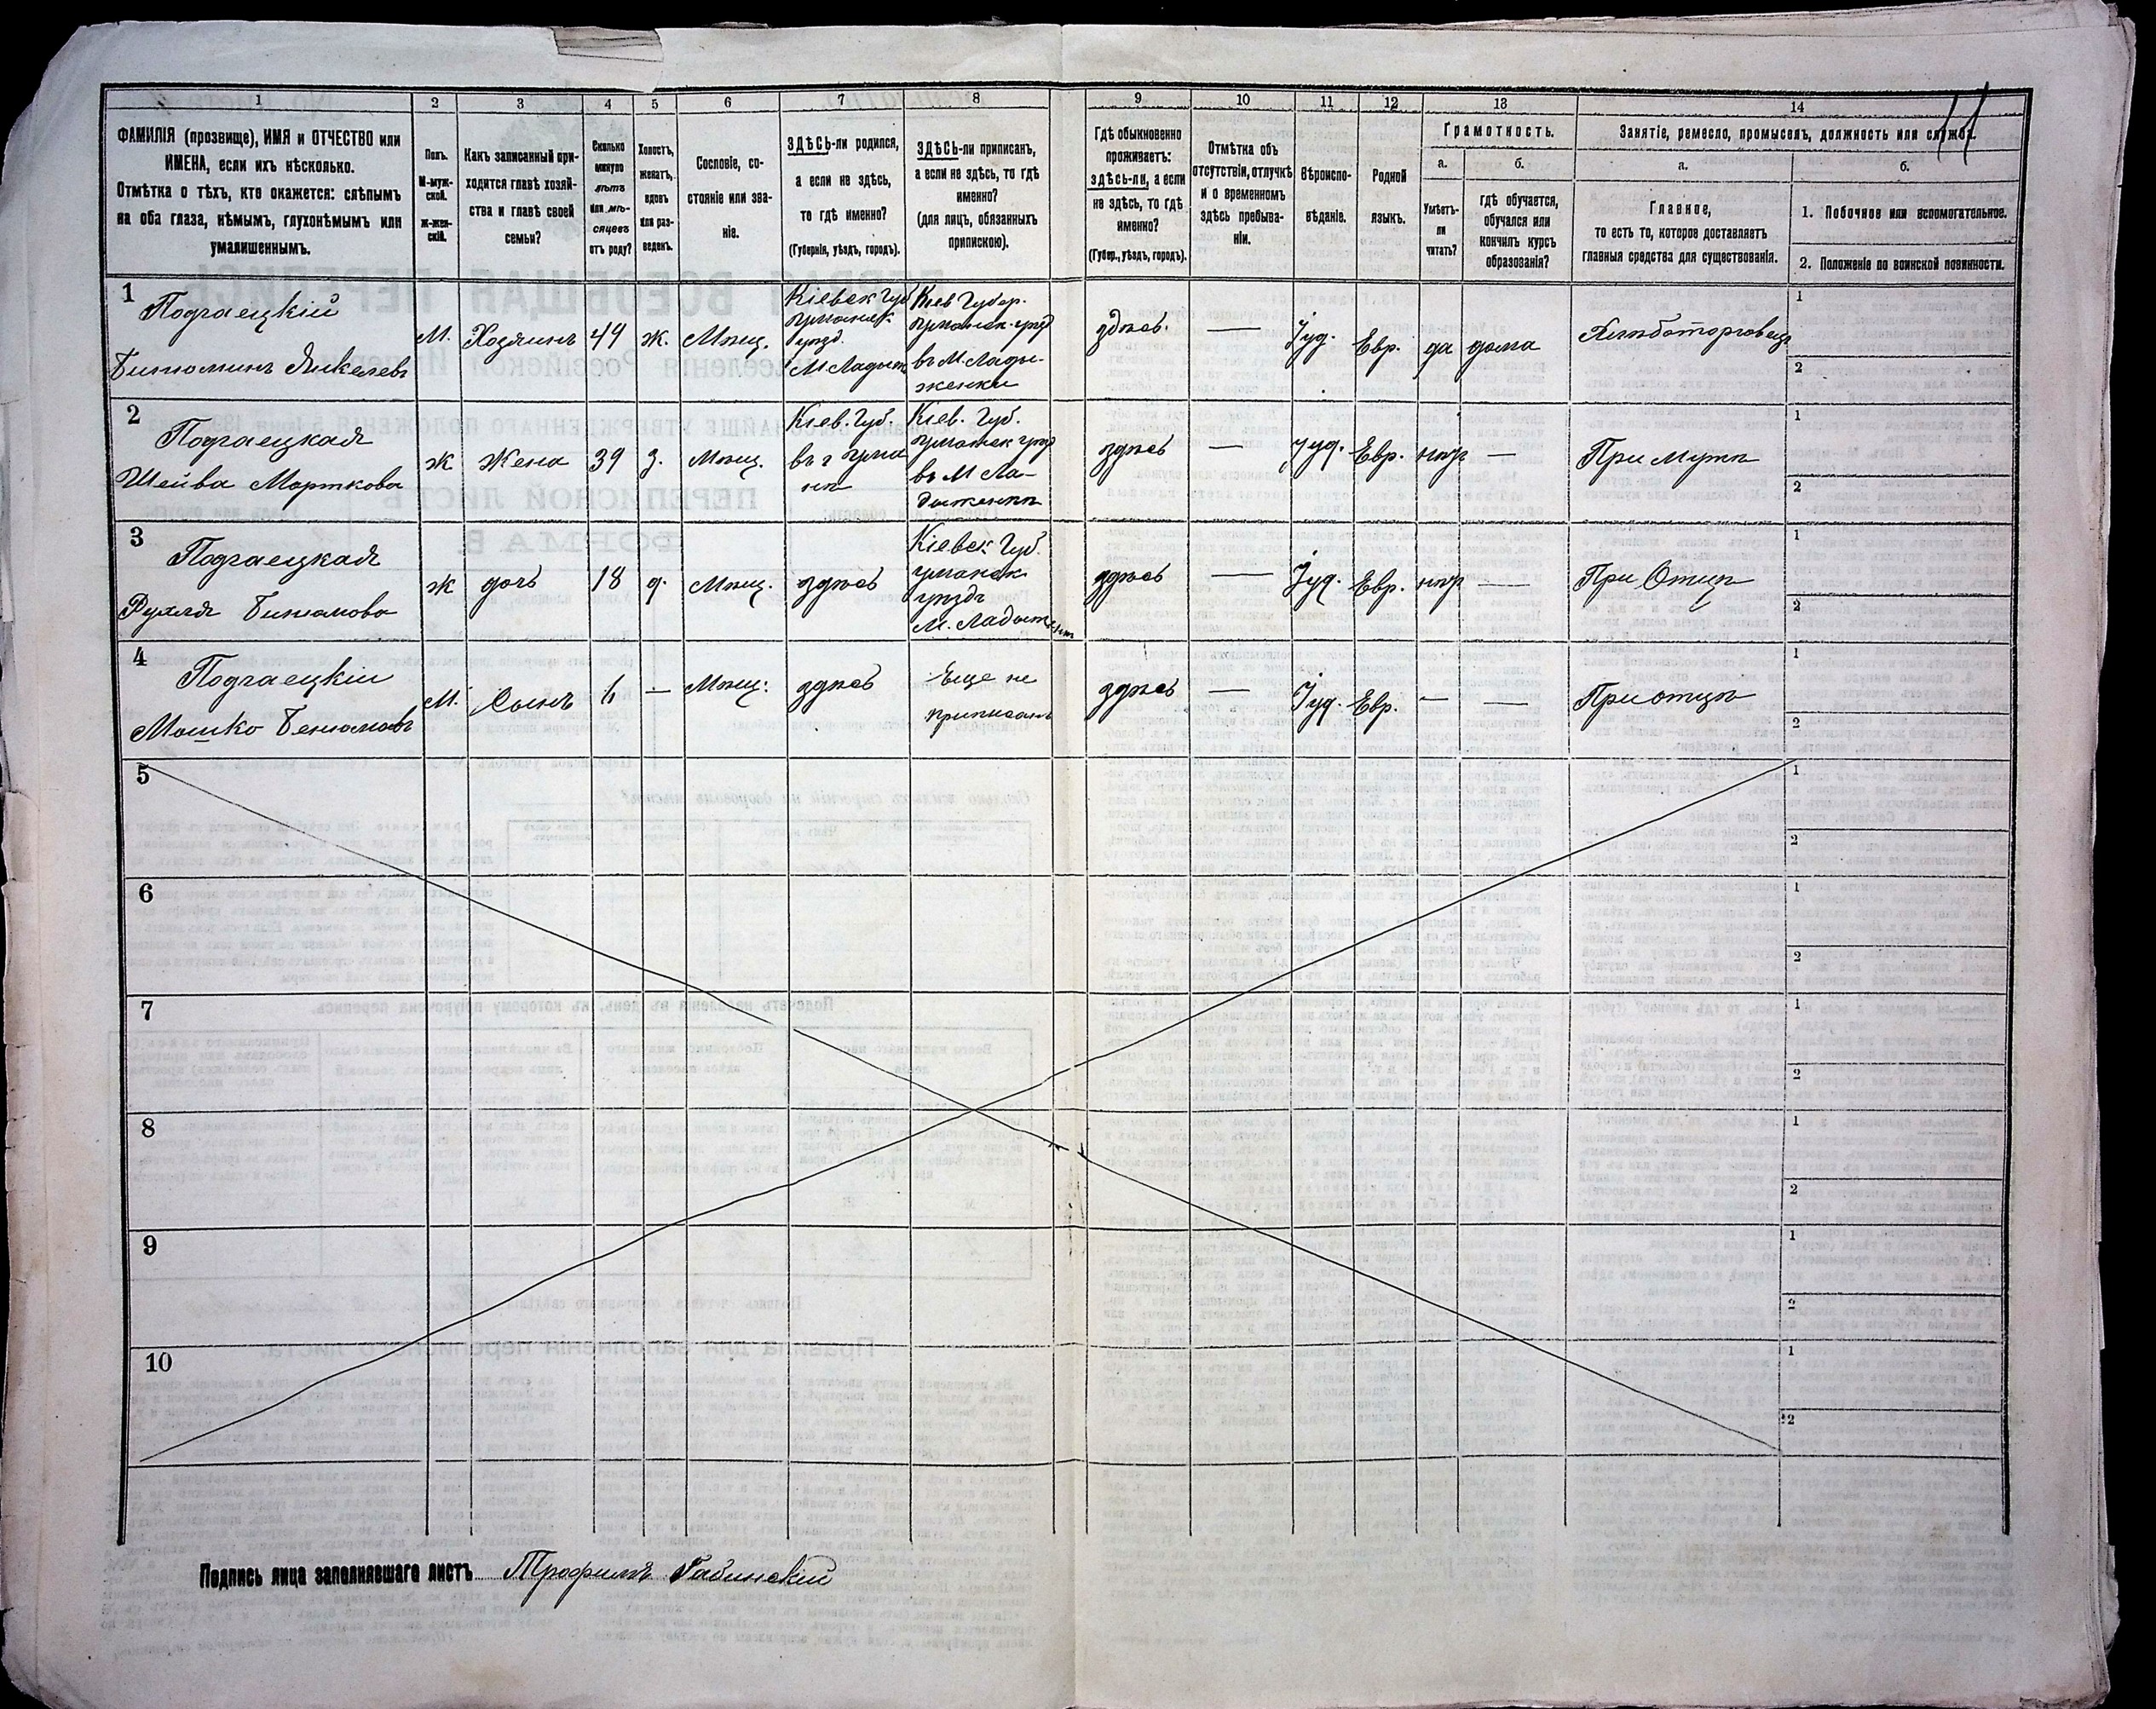 11
1 2 3 4 5 6 7 8 9 10 11 12 13 14
ФАМИЛІЯ (прозвище), ИМЯ и ОТЧЕСТВО или
ИМЕНА, если ихъ нѣсколько.
Отмѣтка о тѣхъ, кто окажется: слѣпымъ
на оба глаза, нѣмымъ, глухонѣмымъ или
умалишеннымъ.
Полъ.
М-муж-
ской.
Ж-жен-
скій.
Какъ записанный при-
ходится главѣ хозяй-
ства и главѣ своей
семьи?
Сколько
минуло
лѣтъ
или мѣ-
сяцевъ
отъ роду?
Холостъ,
женатъ,
вдовъ
или раз-
веденъ.
Сословіе, со-
стояніе или зва-
ніе.
ЗДѢСЬ-ли родился,
а если не здѣсь,
то гдѣ именно?
(Губернія, уѣздъ, городъ).
ЗДѢСЬ-ли приписанъ,
а если не здѣсь, то гдѣ
именно?
(для лицъ, обязанныхъ
припискою).
Гдѣ обыкновенно
проживаетъ:
здѣсь-ли, а если
не здѣсь, то гдѣ
именно?
(Губер., уѣздъ, городъ).
Отмѣтка объ
отсутствіи, отлучкѣ
и о временномъ
здѣсь пребыва-
ніи.
Вѣроиспо-
вѣданіе.
Родной
языкъ.
Грамотность.
а.
Умѣетъ-
ли
читать?
б.
гдѣ обучается,
обучался или
кончилъ курсъ
образованія?
Занятіе, ремесло, промыселъ, должность или служба.
а.
Главное,
то есть то, которое доставляетъ
главныя средства для существованія.
б.
1. Побочное или вспомогательное.
2. Положеніе по воинской повинности.
1
Подгаецкій
Бинюминъ Янкелевъ
М.
Хозяинъ
44
ж.
Мѣщ.
Кіевск Губ
Уманск.
уѣзд.
М Ладыж
Кіев Губер.
Уманск. уѣзд
въ М. Лады-
женки
здѣсь.
—
Іуд.
Евр.
да
дома
Хлѣботорговецъ
1
2
2
Подгаецкая
Шейва Морткова
ж
жена
39
з.
Мѣщ.
Кіев. Губ.
въ г Ума
нѣ
Кіев. Губ.
Уманск уѣзд
въ М Ла-
дыженкѣ
здѣсь
—
Іуд.
Евр.
нѣт
—
При мужѣ
1
2
3
Подгаецкая
Рухля Бинюмова
ж
дочь
18
д.
Мѣщ.
здѣсь
Кіевск Губ.
Уманск
уѣздъ
М. Ладыженк
здѣсь
—
Іуд.
Евр.
нѣт
—
При Отцѣ
1
2
4
Подгаецкій
Мошко Бенюмовъ
М.
Сынъ
6
—
Мѣщ.
здѣсь
Еще не
приписанъ
здѣсь
—
Іуд.
Евр.
—
—
При отцѣ
1
2
5
1
2
6
1
2
7
1
2
8
1
2
9
1
2
10
1
2
Подпись лица заполнявшаго листъ Трофимъ Габинскій